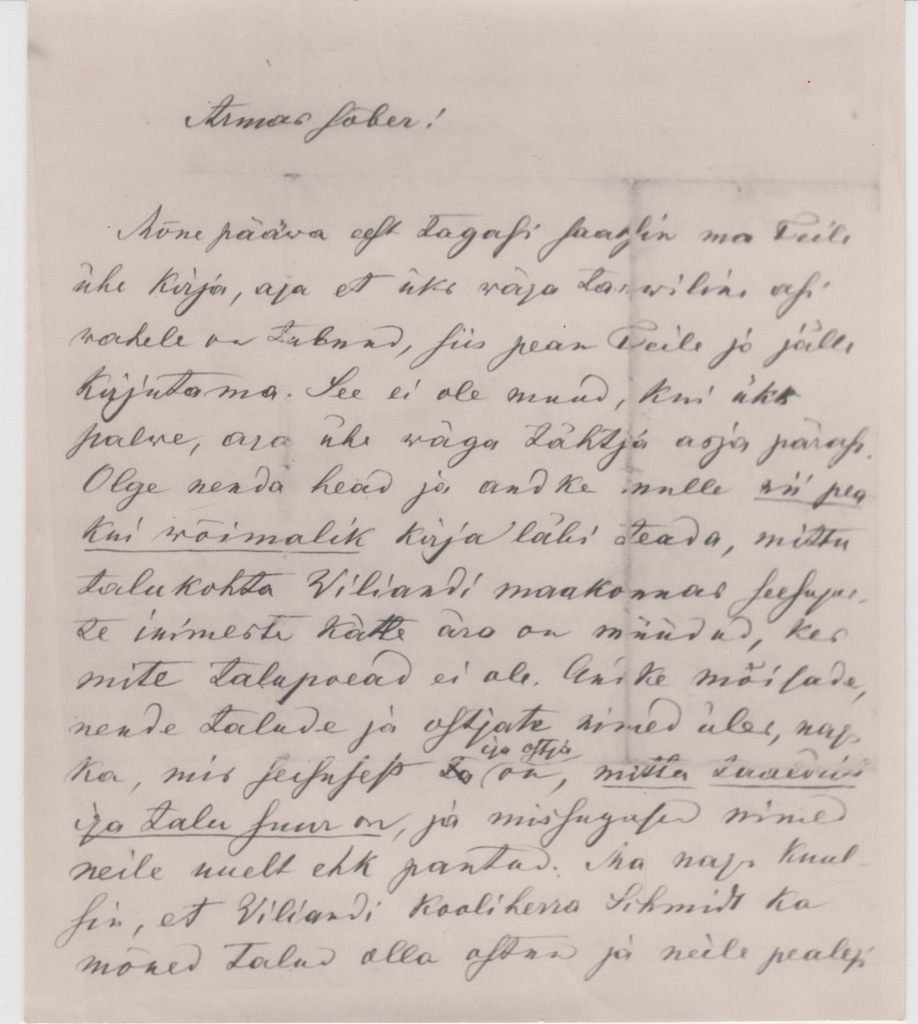 Armas sõber!
Mõne pääwa eest tagasi saatsin ma Teile
ühe kirja, aga et üks wäga tarwiline asi
wahele on tulnud, siis pean Teile jo jälle
kirjutama. See ei ole muud, kui üks
palwe, aga ühe wäga tähtja asja pärast.
Olge nenda head ja andke mulle nii pea
kui wõimalik kirja läbi teada, mittu
talukohta Viliandi maakonnas seesugus-
te inimeste kätte ära on müüdud, kes
mite talupoead ei ole. Andke mõisade,
nende talude ja ostjate nimed üles, nag.
iga ostja
ka, mis seisusest on, mittu taaldrit
iga talu suur on, ja missugused nimed
neile uuelt ehk pantud. Ma nag. kuul-
sin, et Viliandi kooliherra Schmidt ka
mõned talud olla ostnu ja neile pealegi